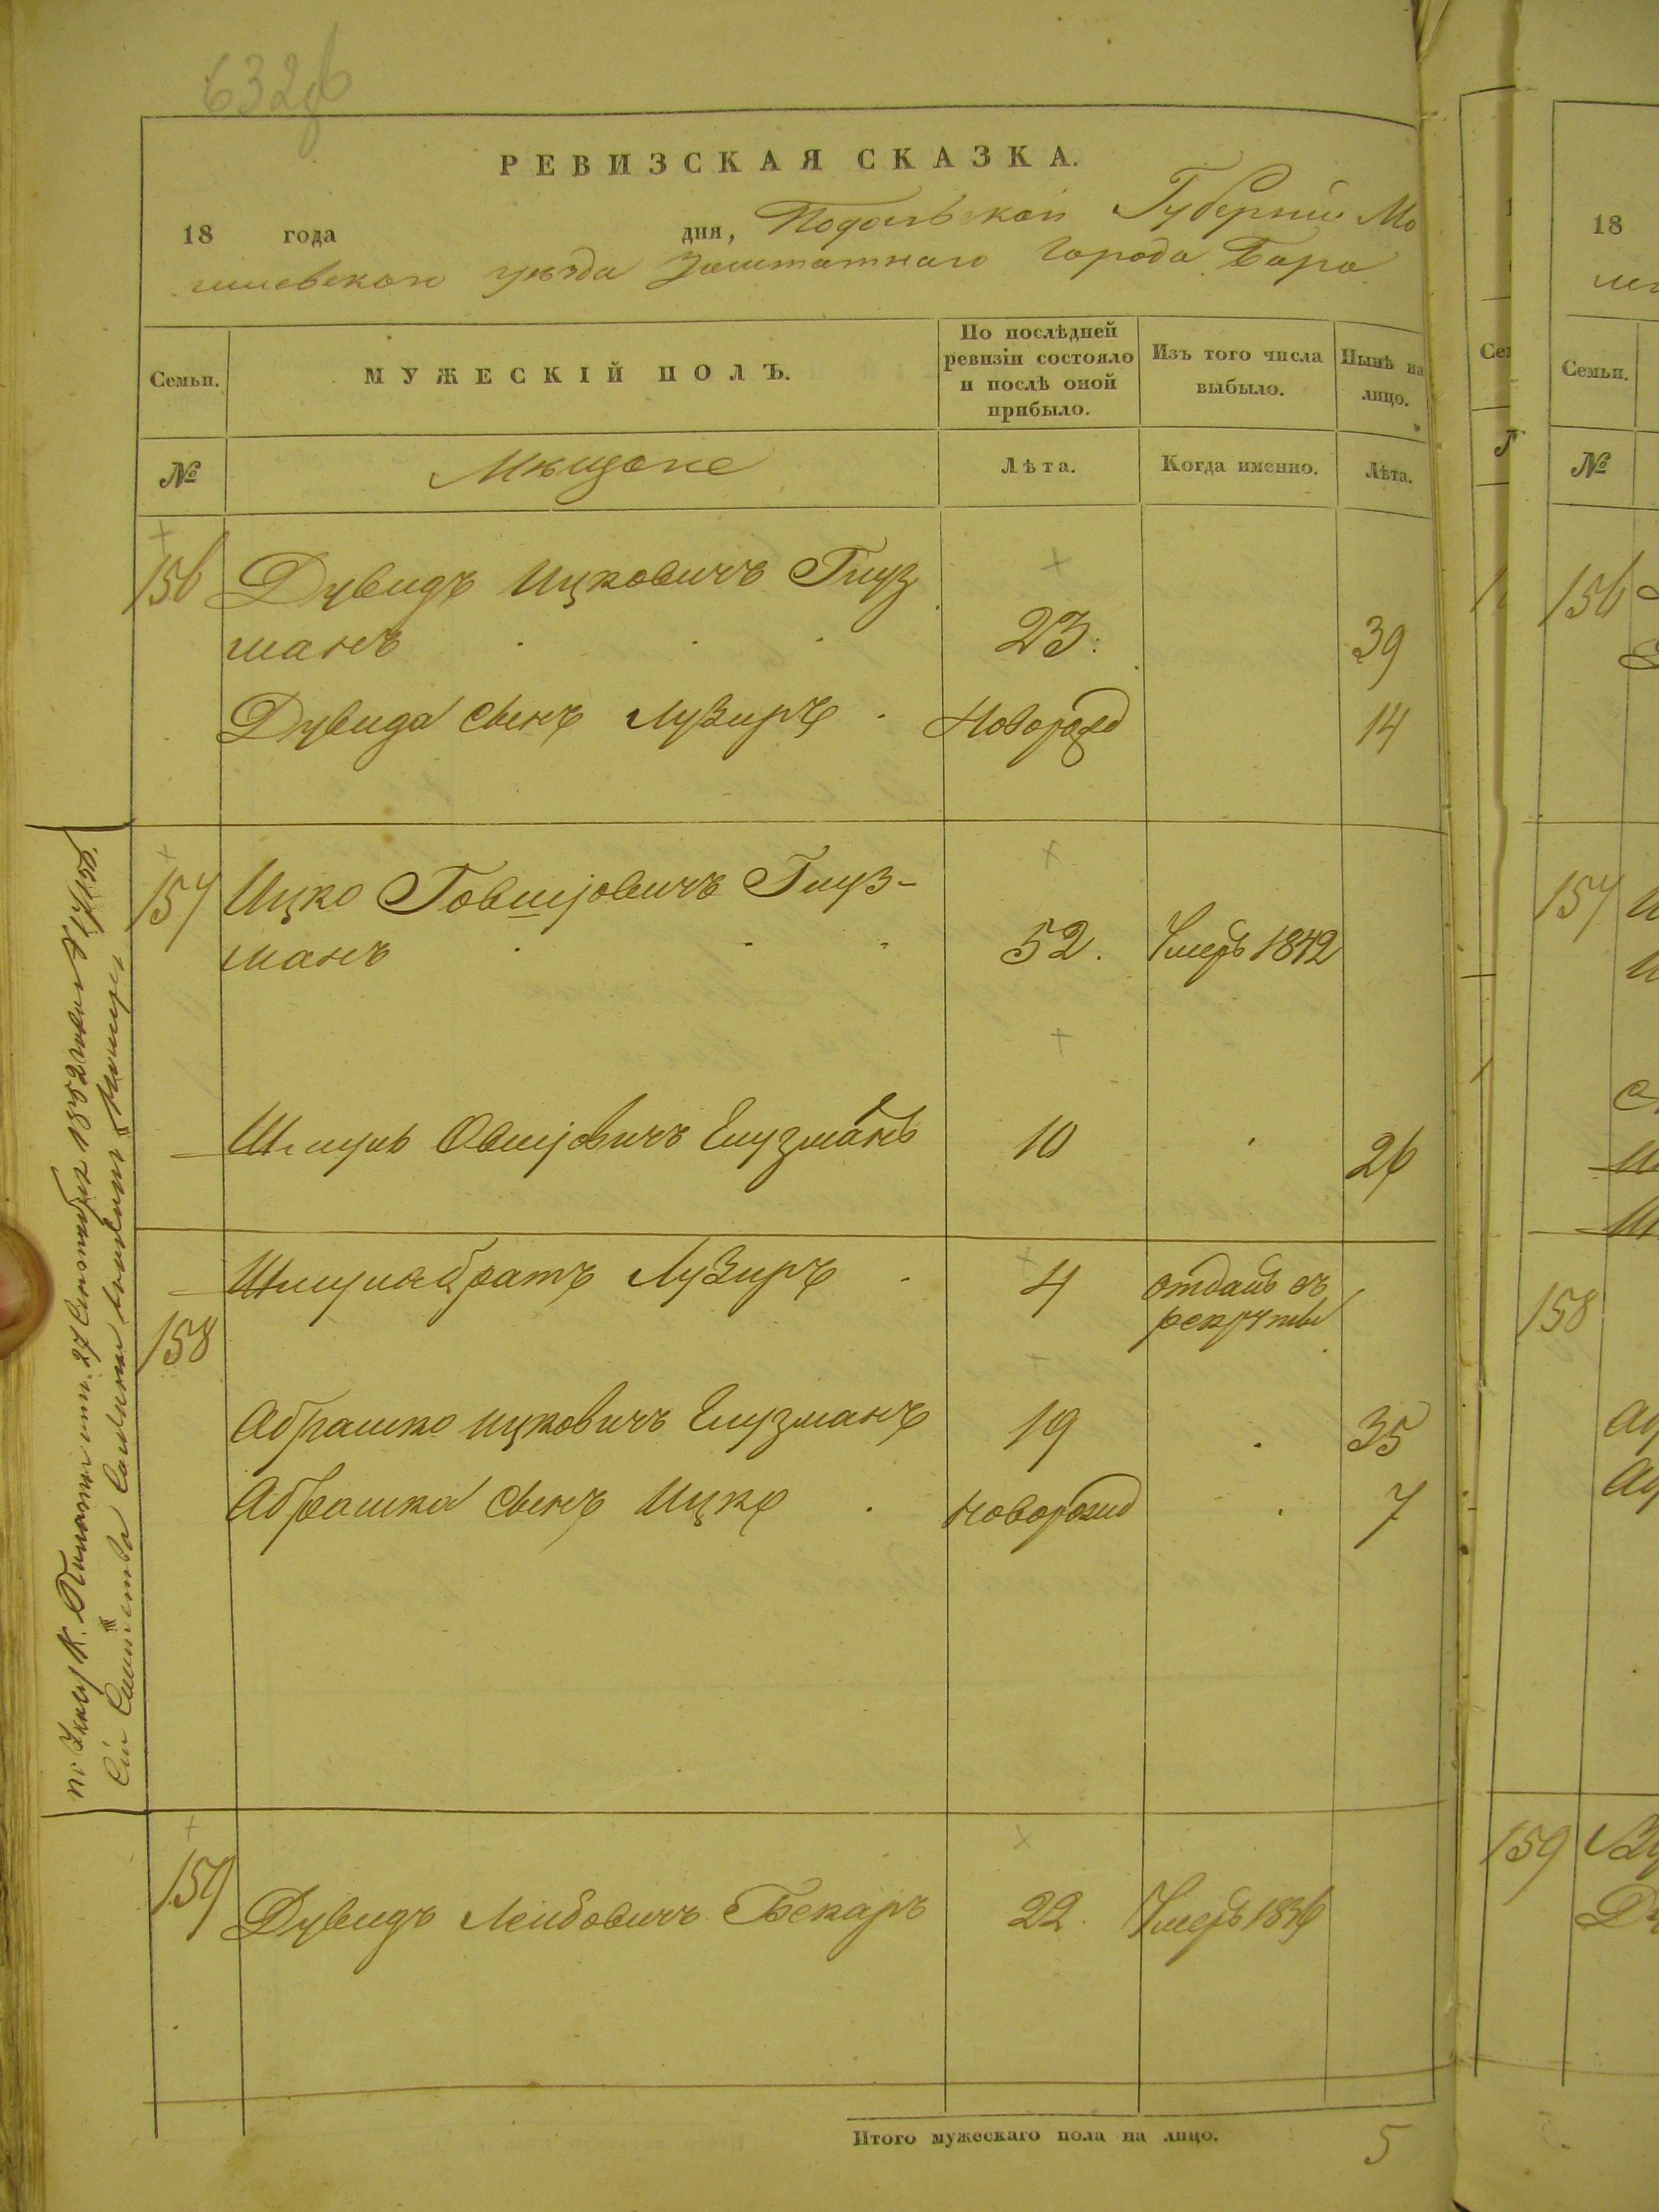 632об
РЕВИЗСКАЯ СКАЗКА.
18 года дня, Подольской Губерніи Мо
гилевскаго уѣзда Заштатнаго Города Бара
Семьи.
МУЖЕСКІЙ ПОЛЪ.
По послѣдней ревизіи состояло и послѣ оной прибыло.
Изъ того числа выбыло.
Нынѣ на лицо.
№
Мѣщане
Лѣта.
Когда именно.
Лѣта.
156 Дувидъ Ицковичъ Глуз
манъ 23. 39
Дувида сынъ Лузиръ Новорожд 14
157 Ицко Говшіовичъ Глуз-
манъ 52. Умеръ 1842
Шмуль Овшіовичъ Глузманъ 10 26
Шмуля братъ Лузиръ 4 отданъ въ
рекруты
158
Абрашко Ицковичъ Глузманъ 19 35
Абрашка сынъ Ицко новорожд 7
159 Дувидъ Лейбовичъ Бекаръ 22. Умеръ 1836
Итого мужескаго пола на лицо. 5
по Указу К. Палаты 27 Сентября 1852
Сіи Семейства
18
Семьи.
№
156
157
158
159